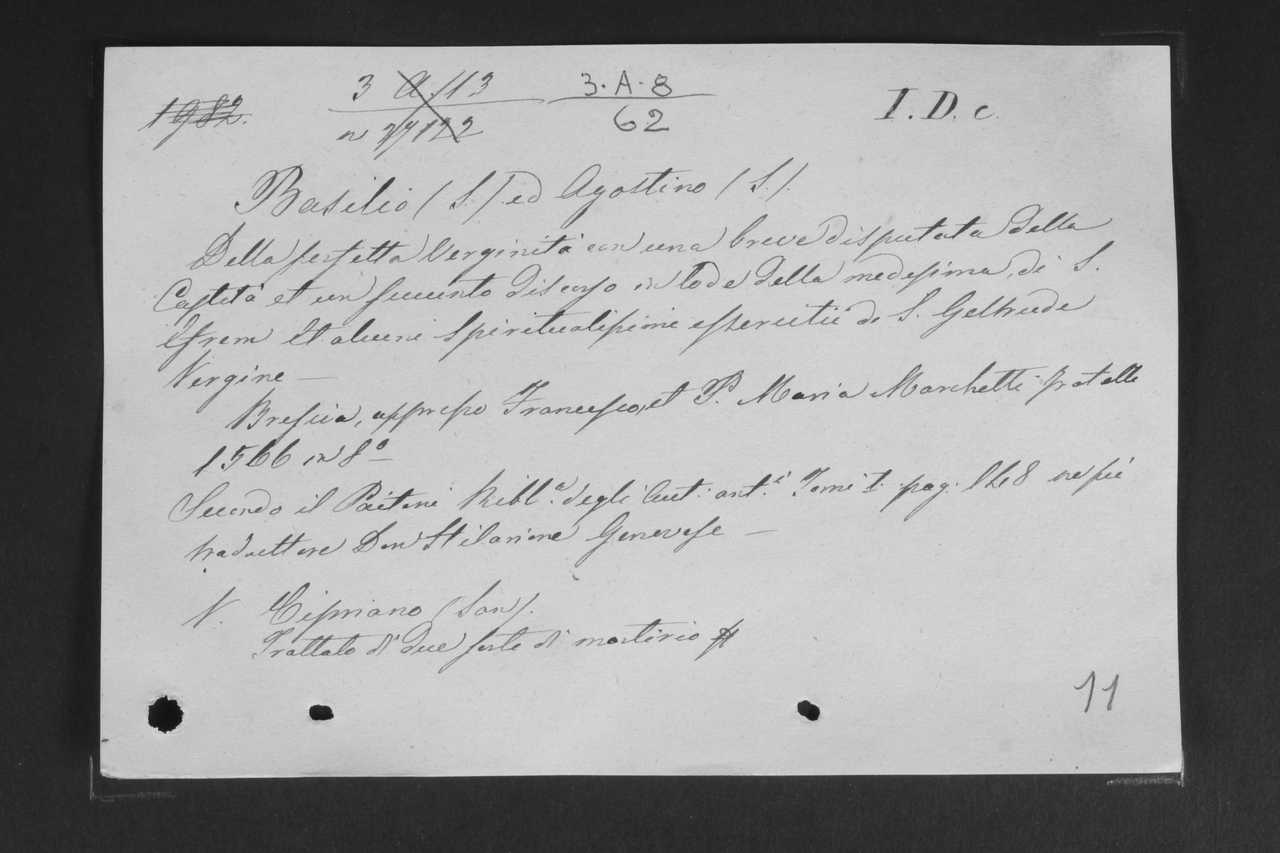 1982. 3 A 113 3.A.8 I.D.c.
n 27122 62
Basilio (S.) ed Agostino (S.).
Della perfetta Verginità con una breve disputata della
Castità et un succinto discorso in lode della medesima, di S.
Efrem Et alcuni spiritualissimi essercitii di S. Geltrude
Vergine —
Brescia, appresso Francesco, et P. Maria Marchetti fratelli
1566 in 8º —
Secondo il Paitoni Bibl.ª degli Aut. ant.i Tomo I. pag. 148 ne fù
traduttore Don Hilarione Genovese —
V. Cipriano (San).
Trattato di due sorte di martirio
11